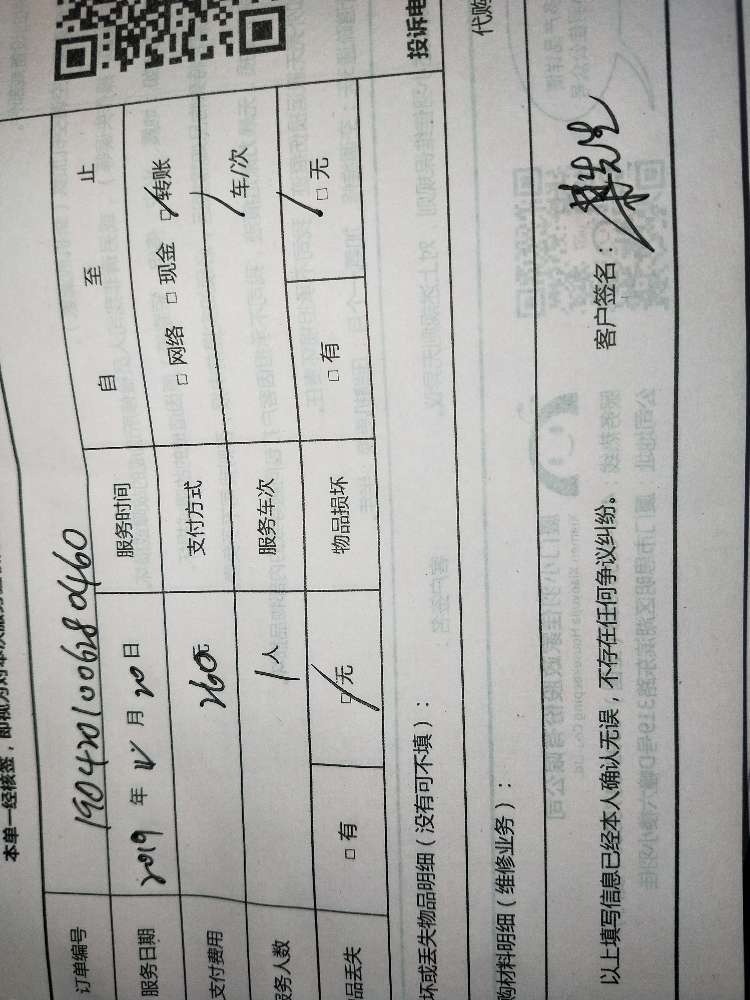 本单一经核签，即视为对本次服务
订单编号 1904201006280460
服务日期 2019 年 月 20 日 服务时间 自 至 止
支付费用 260元 支付方式 □ 网络 □ 现金 □ 转账
服务人数 1 人 服务车次 / 车/次
品丢失 □ 有 □ 无 物品损坏 □ 有 □ 无
投诉电
坏或丢失物品明细（没有可不填）：
代购
购材料明细（维修业务）：
以上填写信息已经本人确认无误，不存在任何争议纠纷。 客户签名：